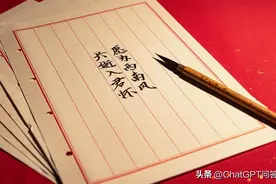 愿为西南风
长逝入君怀
头条 @ChatGPT问答